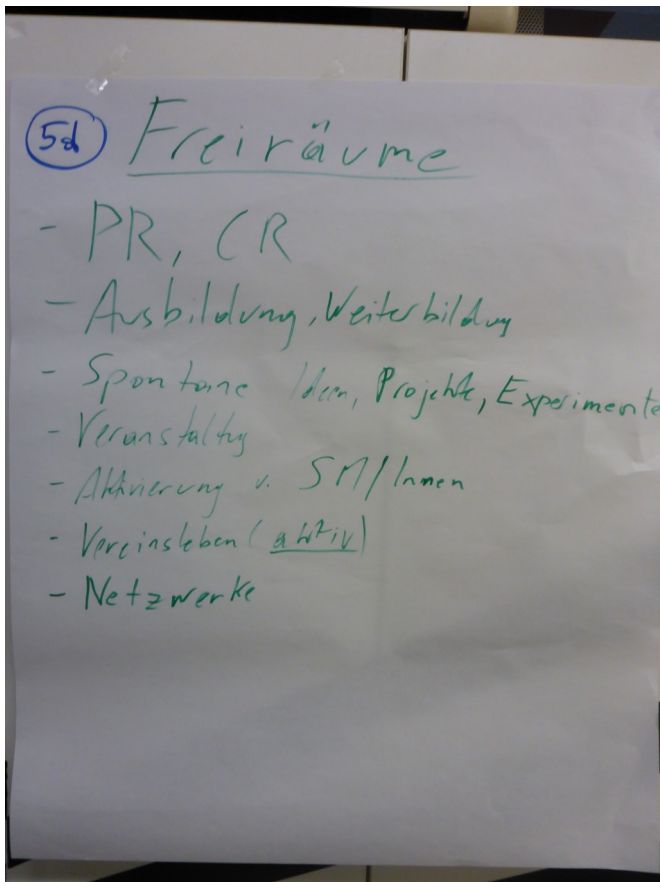 5d Freiräume
- PR, CR
- Ausbildung, Weiterbildung
- Spontane Ideen, Projekte, Experimente
- Veranstaltg
- Aktivierung v. SM/Innen
- Vereinsleben (aktiv)
- Netzwerke